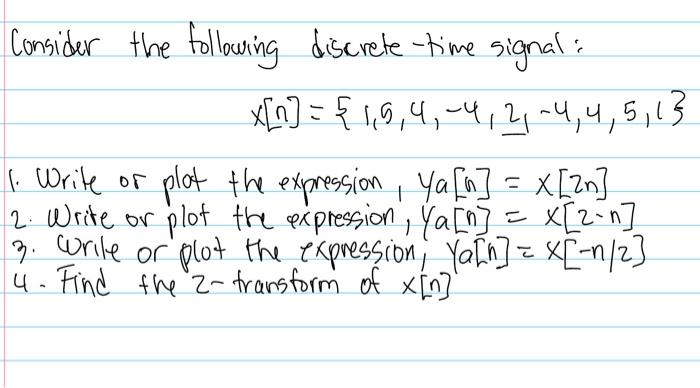 Consider the following discrete-time signal:
x[n] = {1, 5, 4, -4, 2, -4, 4, 5, 1}
1. Write or plot the expression, ya[n] = x[2n]
2. Write or plot the expression, ya[n] = x[2-n]
3. Write or plot the expression, ya[n] = x[-n/2]
4. Find the z-transform of x[n]